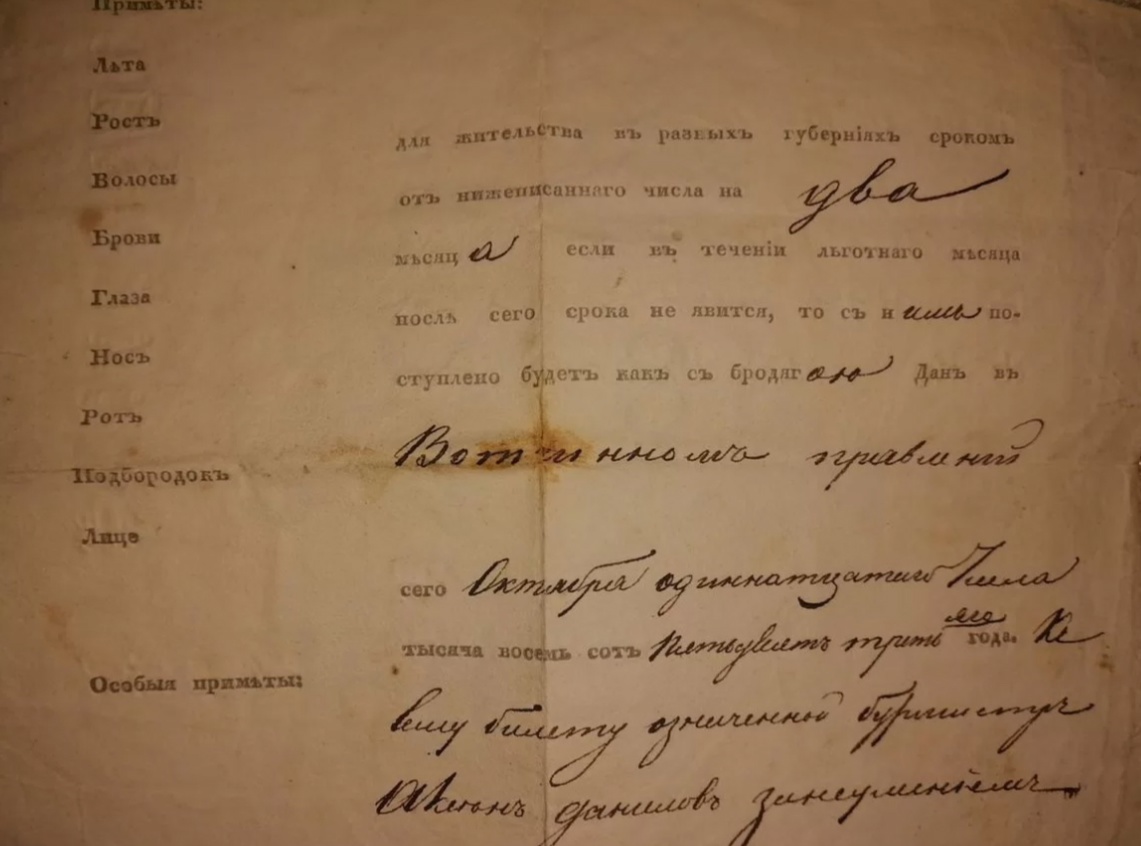 Примѣты:
Лѣта
Ростъ
Волосы
Брови
Глаза
Носъ
Ротъ
Подбородокъ
Лице
Особыя примѣты:
для жительства въ разныхъ губерніяхъ срокомъ
отъ нижеписаннаго числа на два
мѣсяца если въ теченіи льготнаго мѣсяца
послѣ сего срока не явится, то съ нимъ по-
ступлено будетъ какъ съ бродягою Данъ въ
Вотчинномъ правленій
сего Октября одиннатцатаго Числа
тысяча восемь сотъ Пятьдѣсятъ третьяго года. Ке
сему билету означенной бурмистръ
данилов